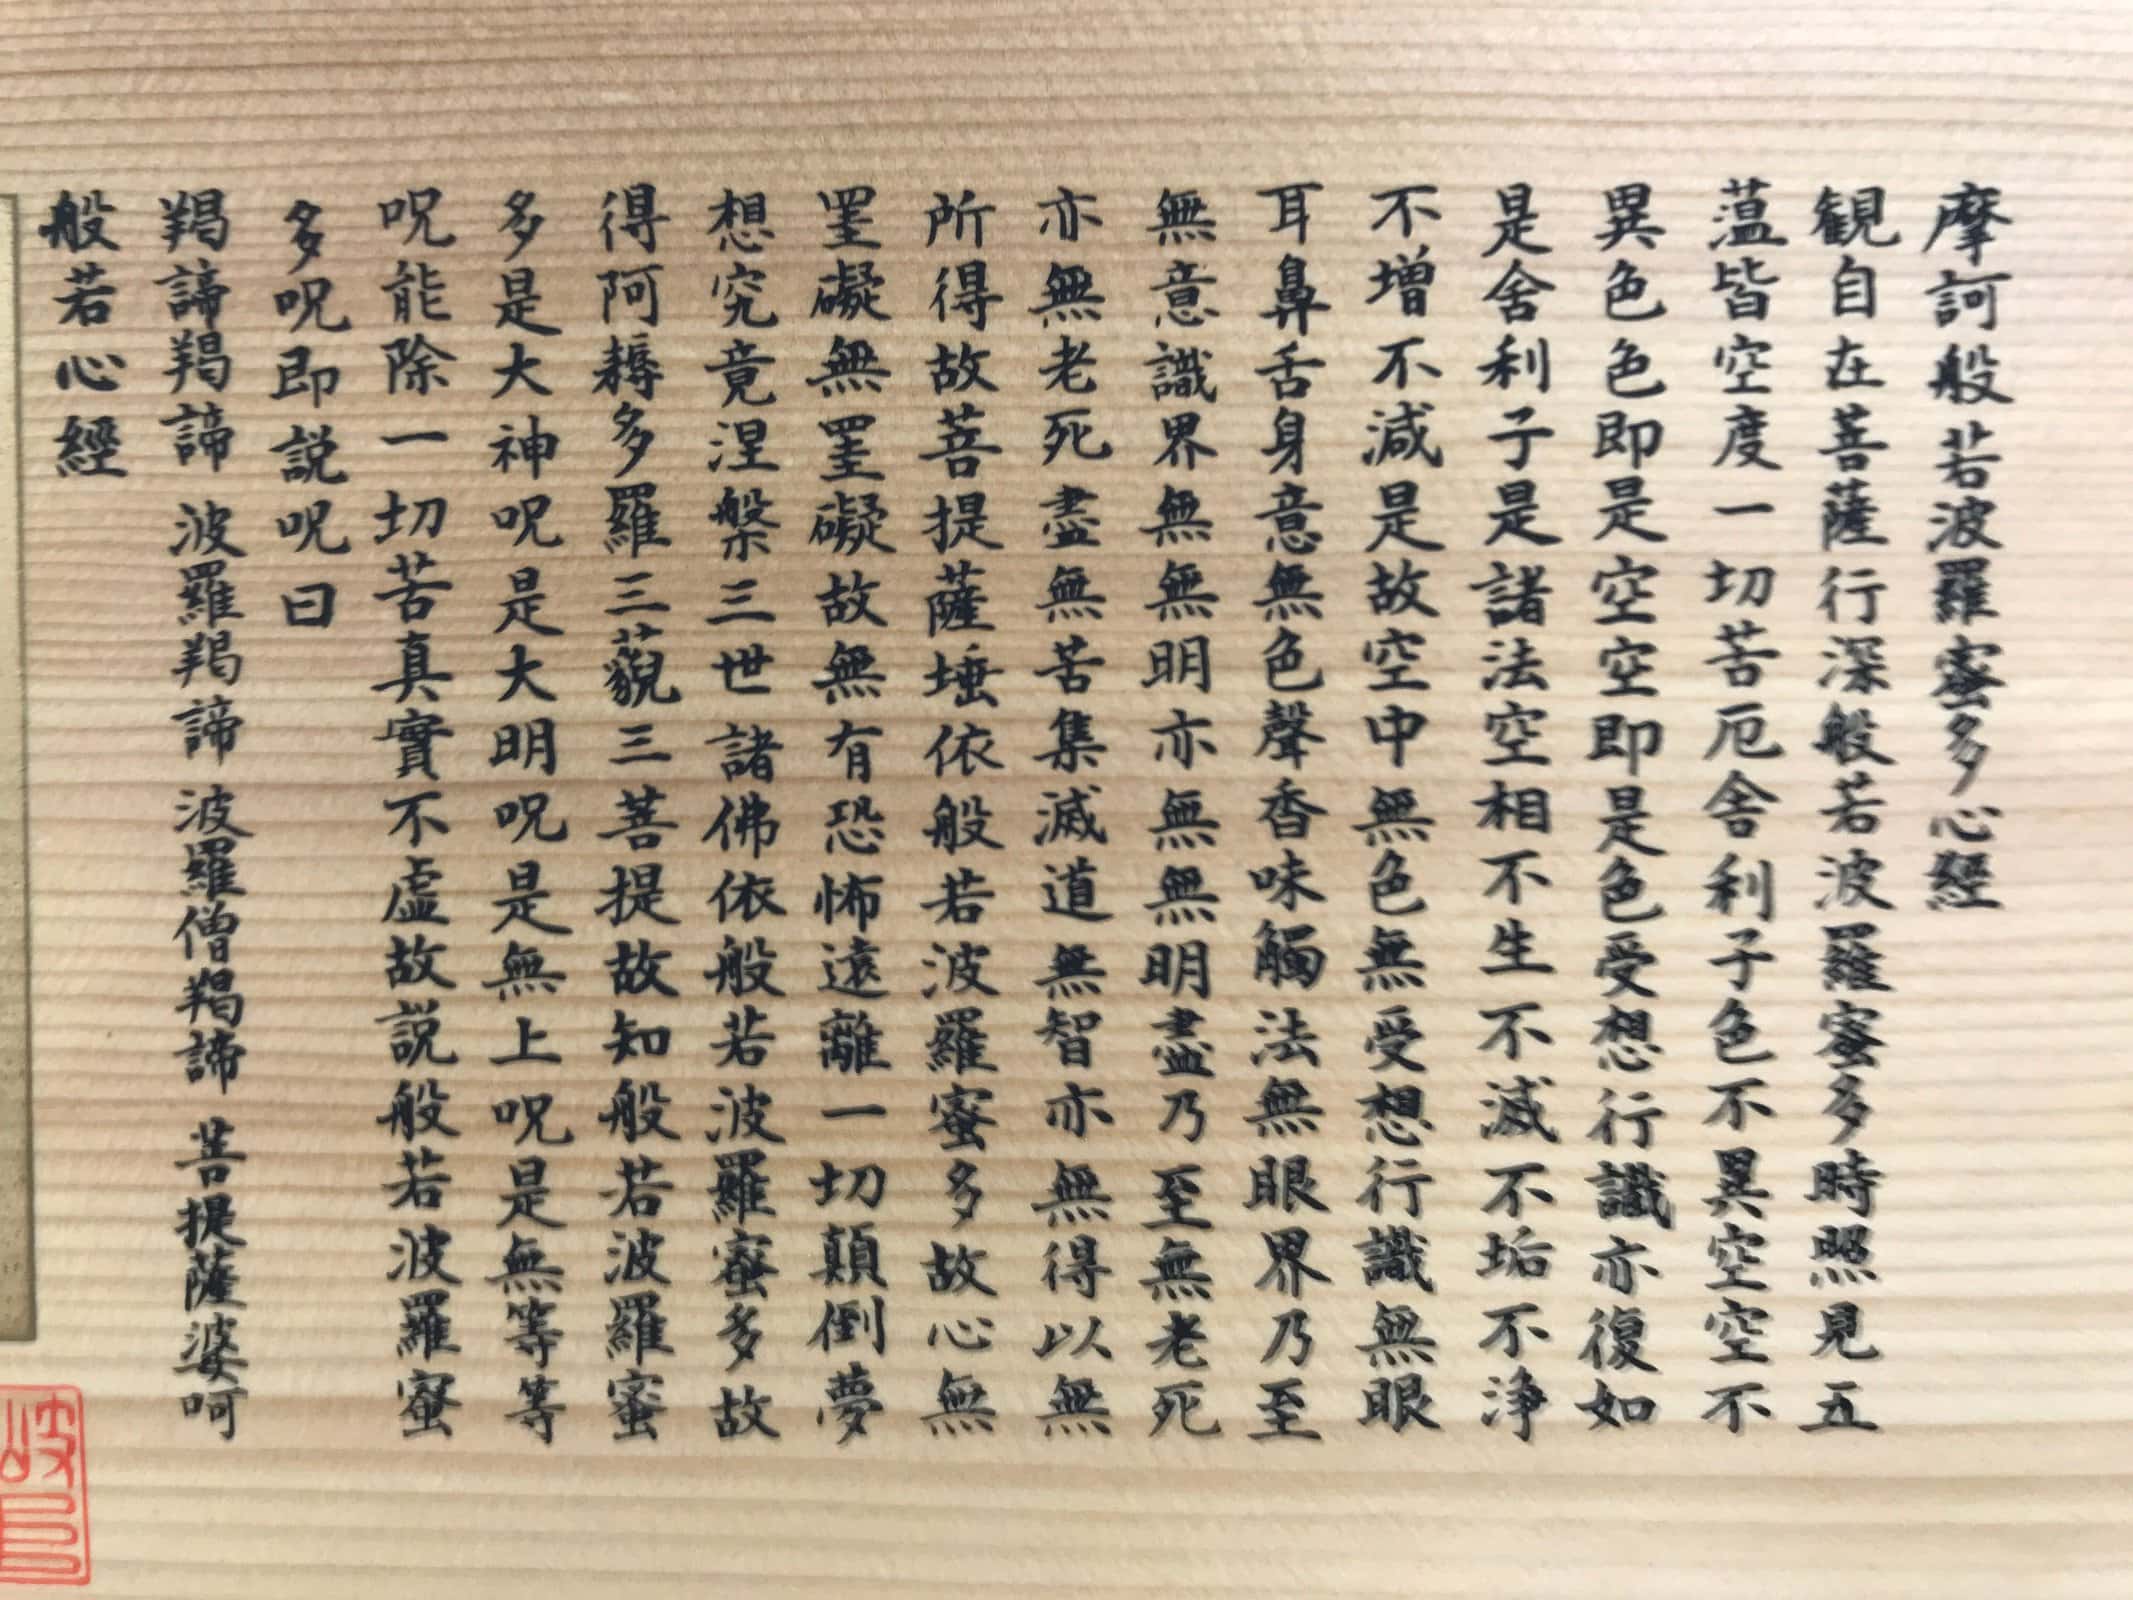 摩訶般若波羅蜜多心經
観自在菩薩行深般若波羅蜜多時照見五
薀皆空度一切苦厄舎利子色不異空空不
異色色即是空空即是色受想行識亦復如
是舎利子是諸法空相不生不滅不垢不浄
不増不減是故空中無色無受想行識無眼
耳鼻舌身意無色聲香味觸法無眼界乃至
無意識界無無明亦無無明盡乃至無老死
亦無老死盡無苦集滅道無智亦無得以無
所得故菩提薩埵依般若波羅蜜多故心無
罣礙無罣礙故無有恐怖遠離一切顛倒夢
想究竟涅槃三世諸佛依般若波羅蜜多故
得阿耨多羅三藐三菩提故知般若波羅蜜
多是大神呪是大明呪是無上呪是無等等
呪能除一切苦真實不虚故説般若波羅蜜
多呪即説呪曰
羯諦羯諦 波羅羯諦 波羅僧羯諦 菩提薩婆呵
般若心經